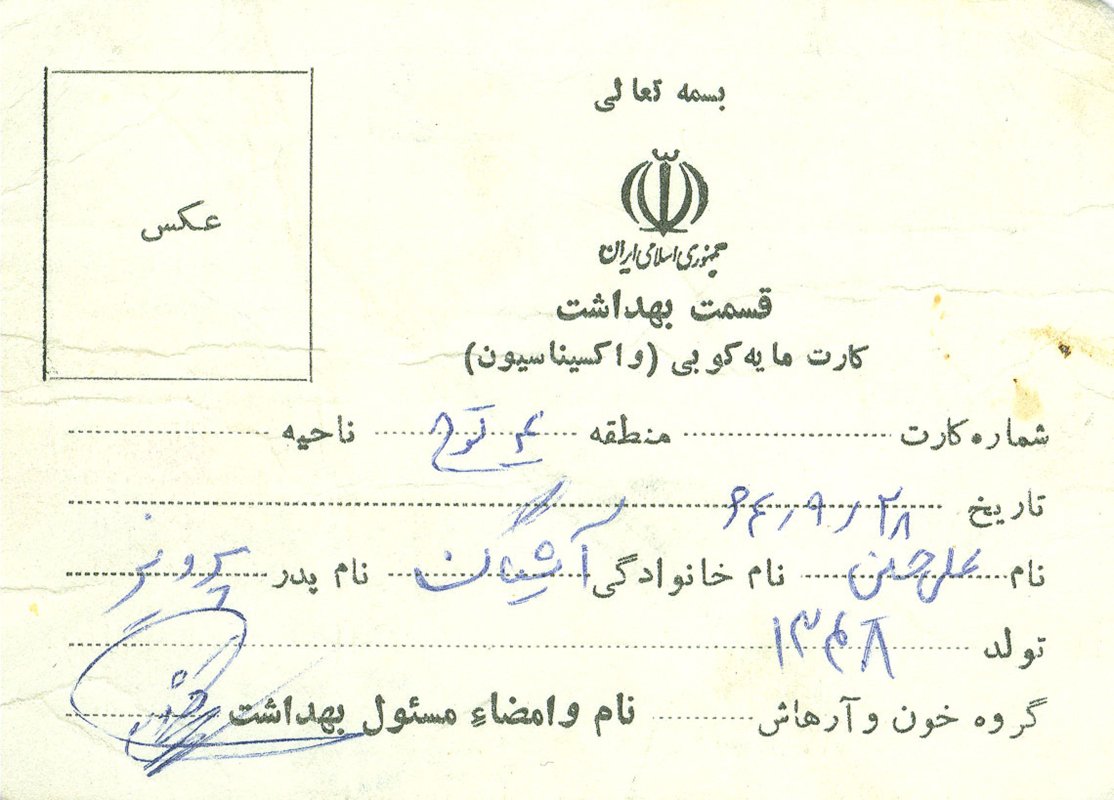 بسمه تعالی
عکس
جمهوری اسلامی ایران
قسمت بهداشت
کارت مایه کوبی (واکسیناسیون)
شماره کارت منطقه ناحیه
تاریخ ۶۴/۹/۲۸
نام نام خانوادگی نام پدر پرویز
تولد ۱۳۴۸
گروه خون و آرهاش نام و امضاءِ مسئول بهداشت